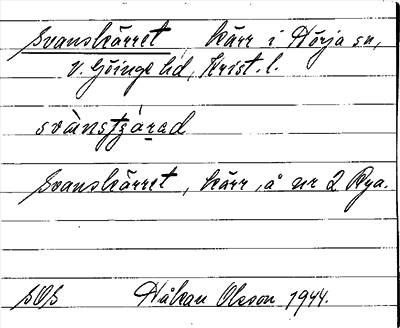 Svanskärret, kärr i Hörja sn,
V. Göinge hd, Krist. l.
svànstʒárad
Svanskärret, kärr, å nr 2 Rya.
SOS Håkan Olsson 1944.